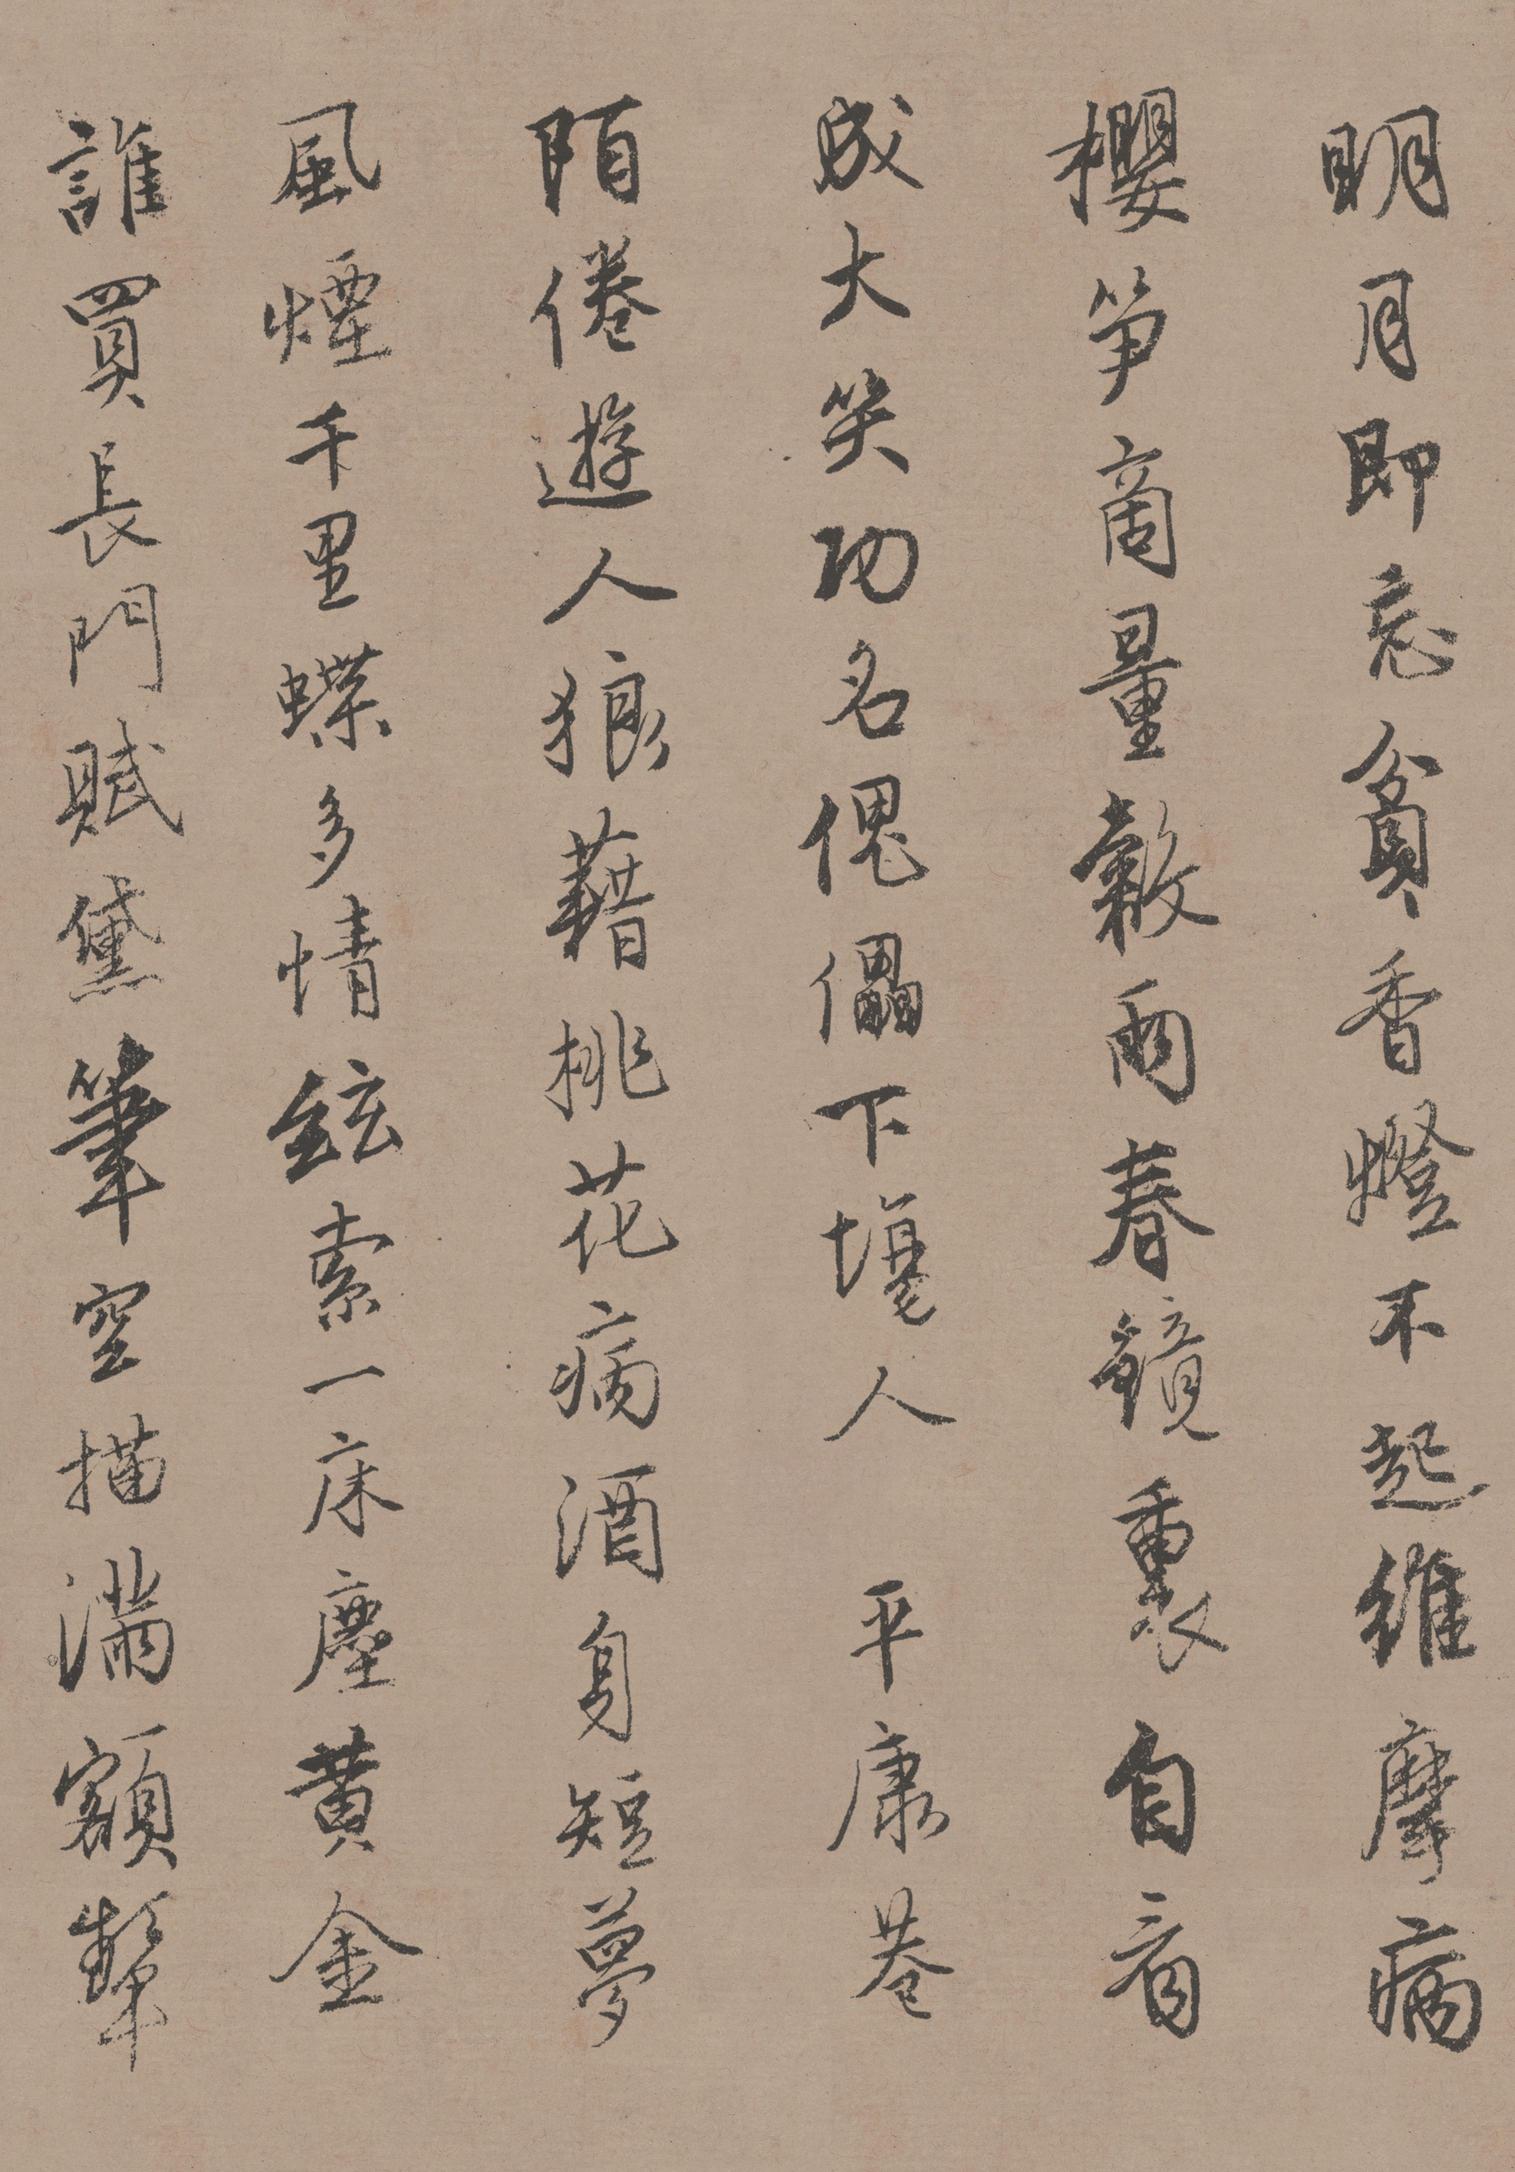 明月即忘貧香燈不起維摩病
櫻笋商量穀雨春鏡裏自看
成大笑功名傀儡下場人 平康巷
陌倦遊人狼藉桃花病酒身短夢
風煙千里蝶多情絃索一床塵黃金
誰買長門賦黛筆空描滿額顰